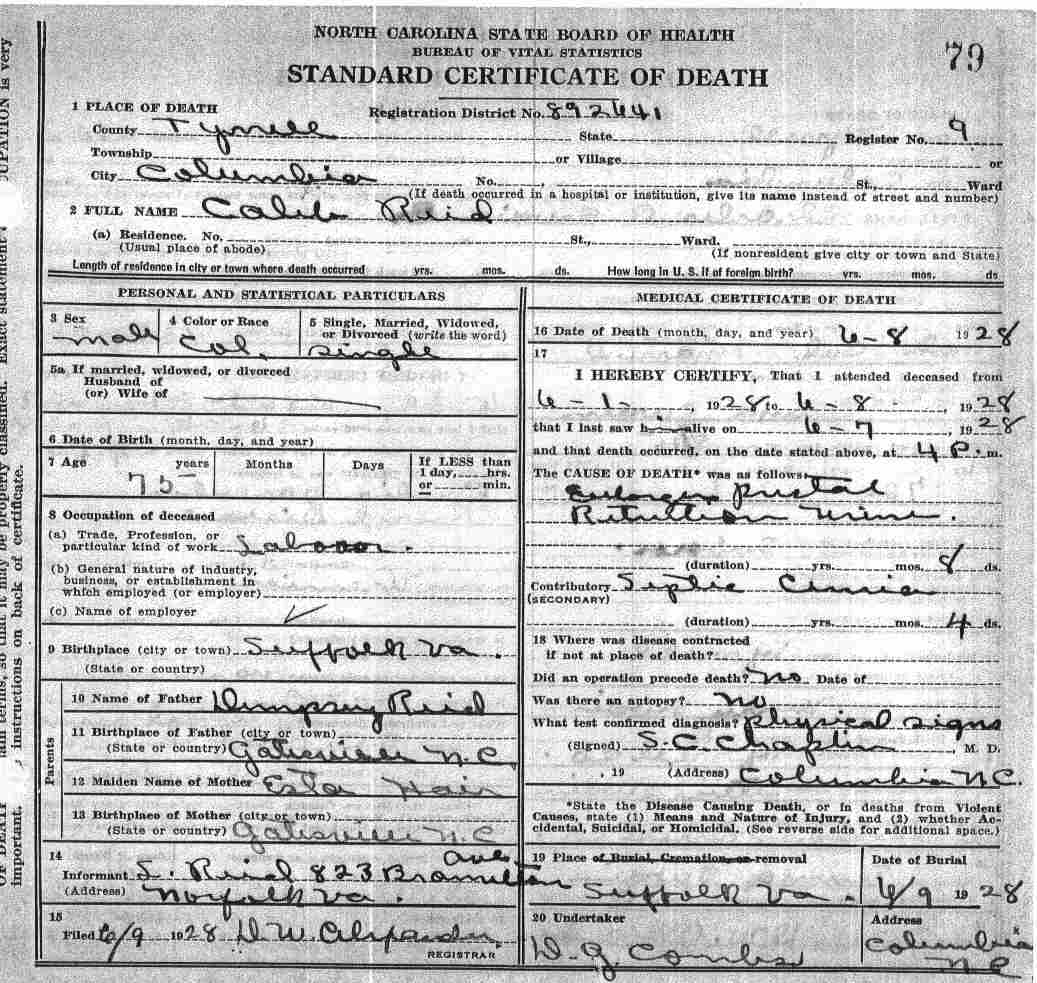 NORTH CAROLINA STATE BOARD OF HEALTH
BUREAU OF VITAL STATISTICS
STANDARD CERTIFICATE OF DEATH
79
1 PLACE OF DEATH
Registration District No. 892641
County Tyrrell State Register No. 9
Township or Village or
City Columbia No. , St., Ward
(If death occurred in a hospital or institution, give its name instead of street and number)
2 FULL NAME Caleb Reid
(a) Residence. No. St., Ward.
(Usual place of abode) (If nonresident give city or town and State)
Length of residence in city or town where death occurred yrs. mos. ds. How long in U. S. if of foreign birth? yrs. mos. ds
PERSONAL AND STATISTICAL PARTICULARS
3 Sex 4 Color or Race 5 Single, Married, Widowed,
or Divorced (write the word)
male Col. single
5a If married, widowed, or divorced
Husband of
(or) Wife of
6 Date of Birth (month, day, and year)
7 Age years Months Days If LESS than
1 day, hrs.
or min.
75
8 Occupation of deceased
(a) Trade, Profession, or
particular kind of work
(b) General nature of industry,
business, or establishment in
which employed (or employer)
(c) Name of employer
9 Birthplace (city or town) Suffolk Va.
(State or country)
Parents
10 Name of Father Dempsey Reid
11 Birthplace of Father (city or town)
(State or country) Gatesville N.C.
12 Maiden Name of Mother Esta Hair
13 Birthplace of Mother (city or town)
(State or country) Gatesville N.C
14
Informant L. Reid 823 Ave
(Address) Norfolk Va.
15
Filed 6/9 1928 D W Alexander
REGISTRAR
MEDICAL CERTIFICATE OF DEATH
16 Date of Death (month, day, and year) 6-8 1928
17
I HEREBY CERTIFY, That I attended deceased from
6-1- , 1928 to 6-8 , 1928
that I last saw him alive on 6-7 , 1928
and that death occurred, on the date stated above, at 4 P. m.
The CAUSE OF DEATH* was as follows:
urine.
(duration) yrs. mos. 8 ds.
Contributory
(SECONDARY)
(duration) yrs. mos. 4 ds.
18 Where was disease contracted
if not at place of death?
Did an operation precede death? no Date of
Was there an autopsy? no
What test confirmed diagnosis? physical signs
(Signed) S. C. Chaplin , M. D.
, 19 (Address) Columbia N.C.
*State the Disease Causing Death, or in deaths from Violent
Causes, state (1) Means and Nature of Injury, and (2) whether Ac-
cidental, Suicidal, or Homicidal. (See reverse side for additional space.)
19 Place of Burial, Cremation, or removal Date of Burial
Suffolk Va. 6/9 1928
20 Undertaker Address
D. G. Combs Columbia
N C
UPATION is very
Exact statement
classified.
so that it may be properly
instructions on back of certificate.
important.